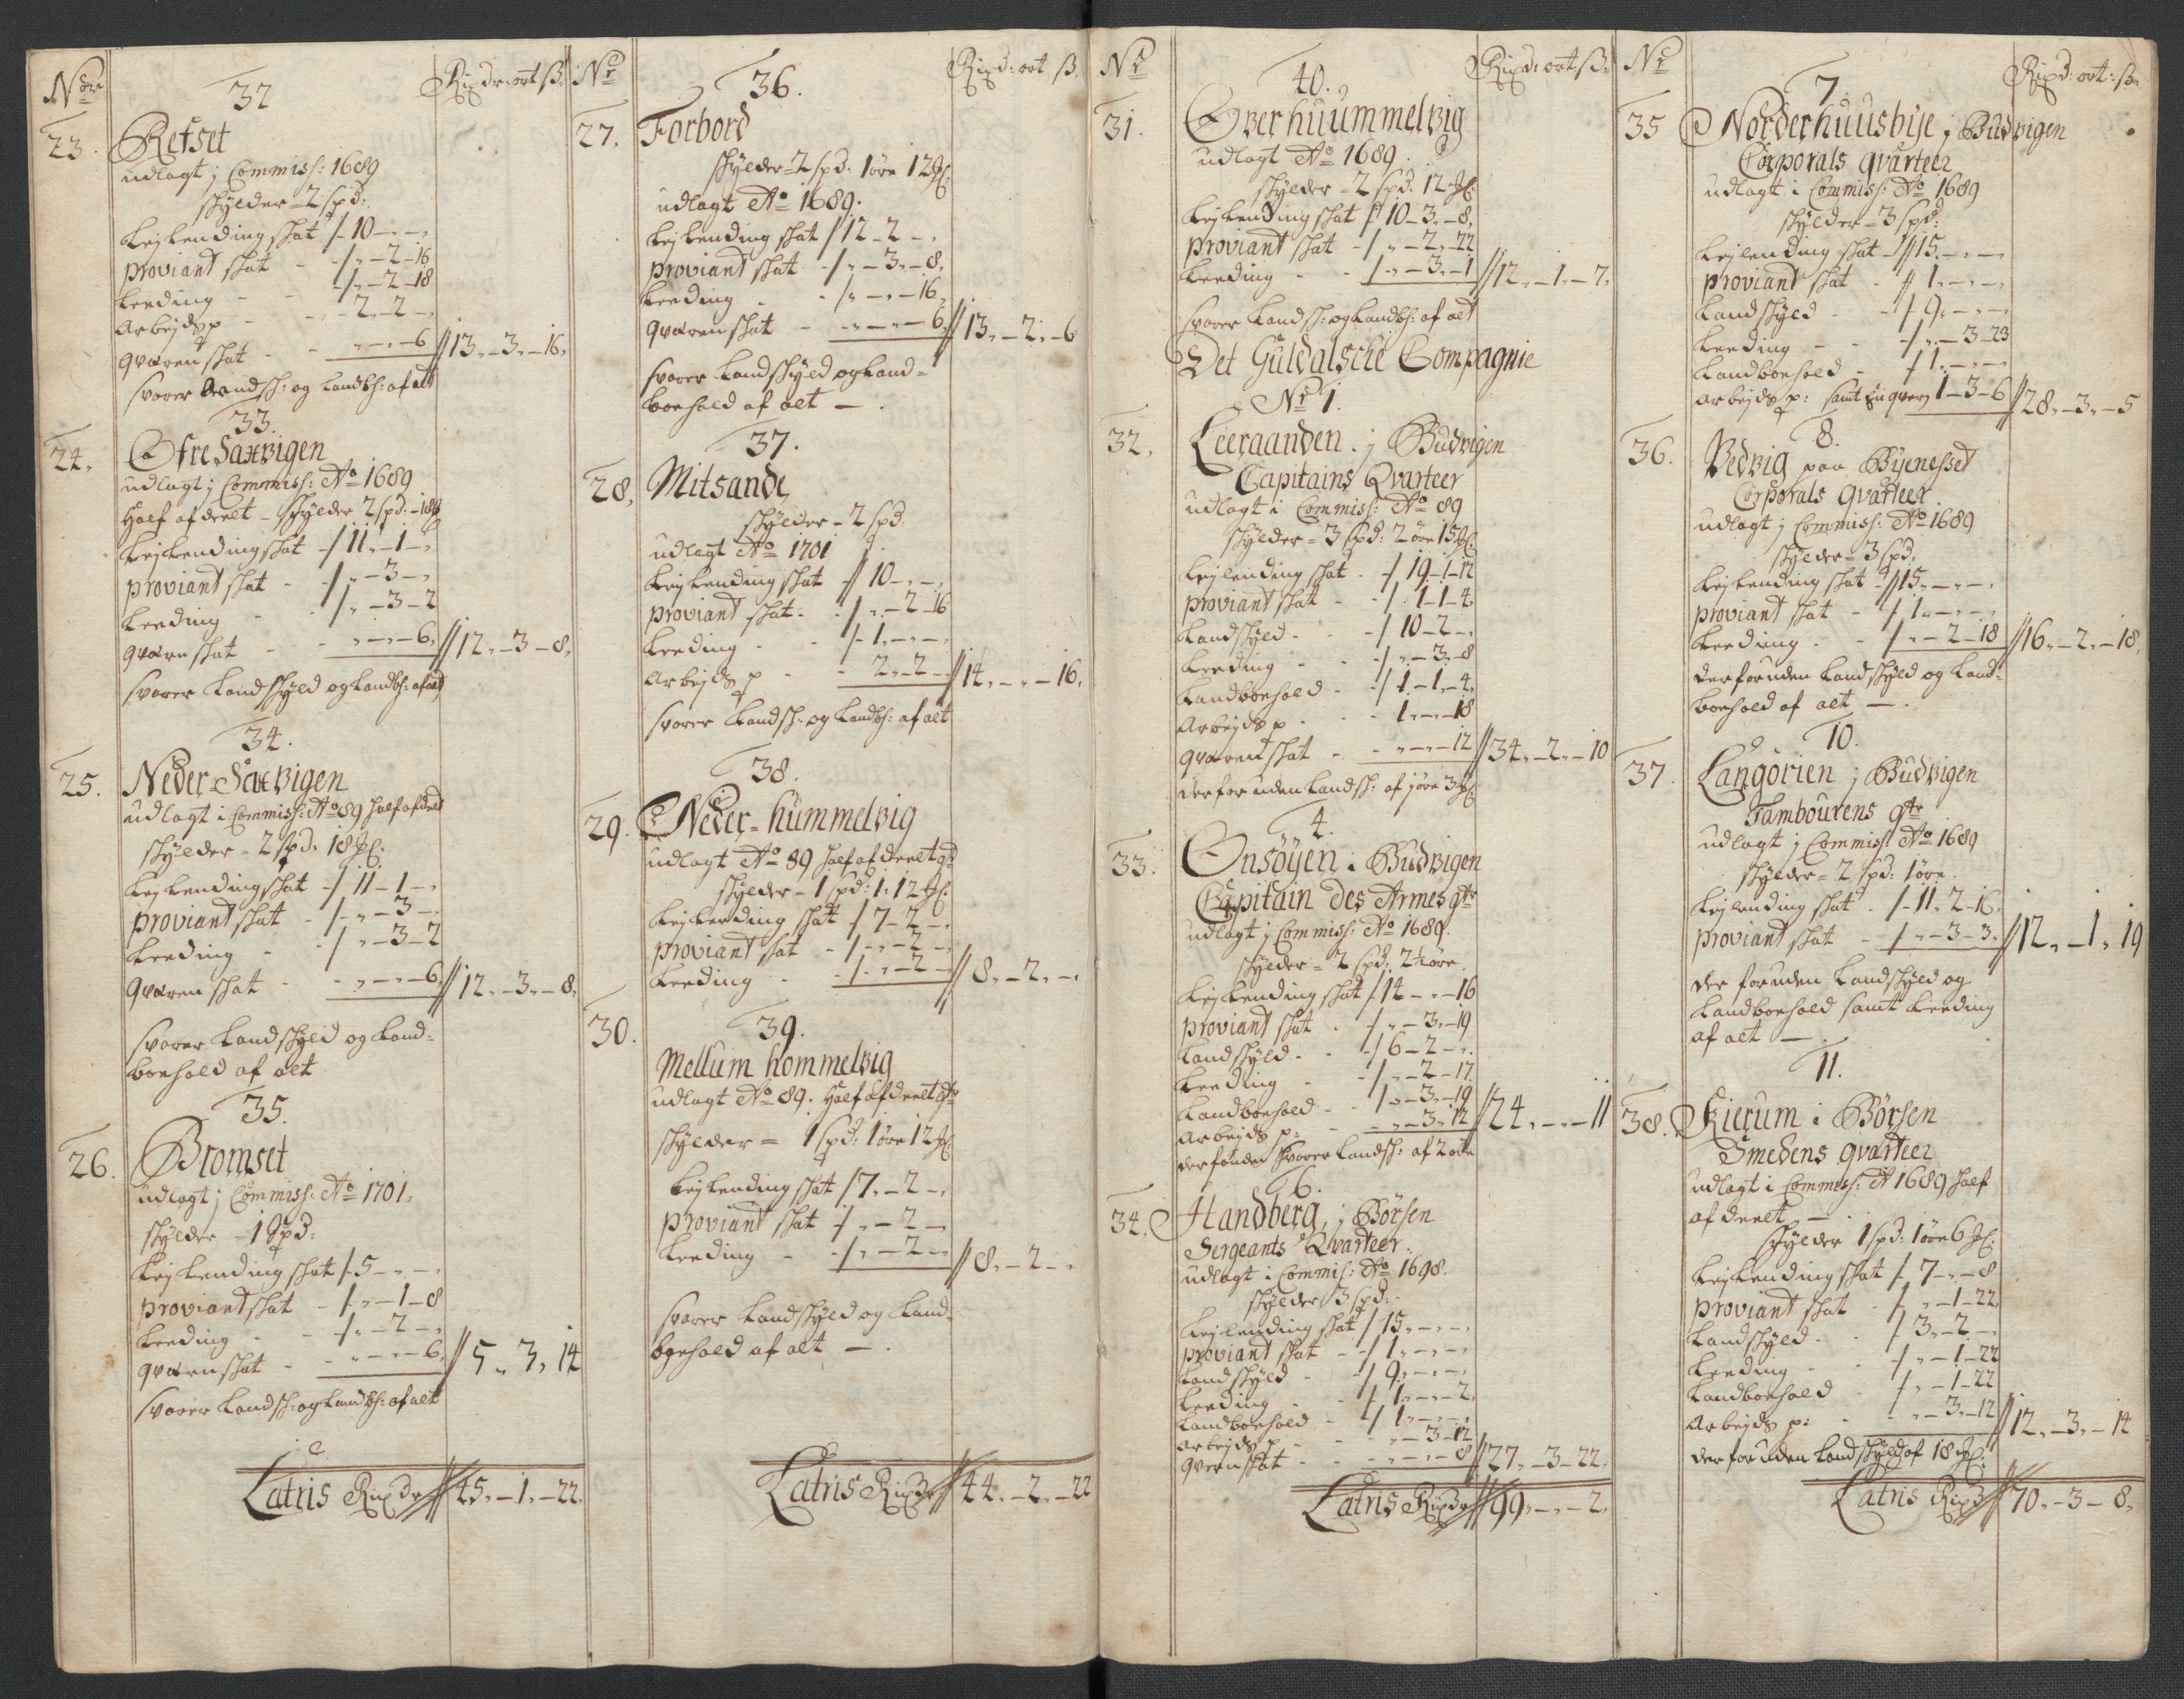 Nr
Rixdr: ort ß:
32
23.
Refset
udlagt j Commiss: 1689
skylder = 2 spd:
Leylending skat - 10 - " - "
proviant skat - " - 2 - 16
Leeding - " - 2 - 18
Arbejds p - 2 - 2 - "
qværen skat - " - " - 6 13 - 3 - 16
svarer Landsk: og Landbh: af alt
33.
24.
Ofre Saxvigen
udlagt j Commiss: Ao 1689
Half afdeelt - skylder 2 spd: - 18
Leylending skat - 11 - 1 - "
proviant skat - " - 3 - "
Leeding - " - 3 - 2
qværn skat - " - " - 6 12 - 3 - 8
svarer Landskyld og Landbh: af alt
34.
25.
Neder Saxvigen
udlagt i Commiss: Ao 89 half afdeelt
skylder = 2 spd: 18
Leylending skat - 11 - 1 - "
proviant skat - " - 3 - "
Leeding - " - 3 - 2
qværen skat - " - " - 6 12 - 3 - 8
svarer Landskyld og Land=
boehold af alt
35.
26.
Bromset
udlagt j Commiss: Ao 1701.
skylder - 1 spd:
Leylending skat - 5 - " - "
proviant skat - " - 1 - 8
Leeding - " - 2 - "
qværn skat - " - " - 6 5 " 3 " 14
svarer Landsk: og Landbh: af alt
Latris Rixdr 45 - 1 - 22
Nr
Rixd: ort ß.
36.
27.
Forbord
skylder = 2 spd: 1 øre 12
udlagt Ao 1689.
Leylending skat 12 - 2 - "
proviant skat - " - 3 - 8
Leeding - " - " - 16
qværen skat - " - " - 6 13 - 2 - 6
svarer Landskyld og Land=
boehold af alt - .
37.
28.
Mitsande
skylder - 2 spd.
udlagt Ao 1701
Leylending skat 10 - " - "
proviant skat - " - 2 - 16
Leeding - 1 - " - "
Arbejds p - 2 - 2 - " 14 - " - 16
svarer Landsk: og Landbh: af alt
38.
29.
Neder=hummelvig
udlagt Ao 89 half afdeelt
skylder - 1 spd: 1: 12
Leylending skat 7 - 2 - "
proviant skat - " - 2 - "
Leeding - " - 2 - " 8 - 2 - "
39.
30.
Mellum hommelvig
udlagt Ao 89. Half afdeelt
skylder = 1 spd: 1 øre 12
Leylending skat 7 - 2 - "
proviant skat - " - 2 - "
Leeding - " - 2 - " 8 - 2 - "
svarer Landskyld og Land=
boehold af alt - .
Latris Rixdr 44 - 2 - 22
Nr
Rixd: ort ß:
40.
31.
Ofver huummelvig
udlagt Ao 1689.
skylder = 2 spd: 12
Leylending skat 10 - 3 - 8
proviant skat - " - 2 - 22
Leeding - " - 3 - 1 12 - 1 - 7
svarer Landsk: og Landbh: af alt
Det Guldalsche Compagnie
Nr 1.
32.
Leeraanden j Budvigen
Capitains Qvarteer
udlagt i Commiss: Ao 89
skylder = 3 spd: 2 øre 15
Leylending skat - 19 - 1 - 12
proviant skat - 1 - 1 - 4
Landskyld - 10 - 2 - "
Leeding - " - 3 - 8
Landboehold - 1 - 1 - 4
Arbejds p - 1 - " - 18
qværen skat - " - " - 12 34 - 2 - 10
derforuden Landsk: af 1 øre 3
4.
33.
Onsöyen i Budvigen
Capitain des Armes qtr
udlagt j Commiss: Ao 1689.
skylder = 2 spd: 2½ øre.
Leylending skat 14 - " - 16
proviant skat - " - 3 - 19
Landskyld - 6 - 2 - "
Leeding - " - 2 - 17
Landboehold - " - 3 - 19
Arbejds p: - " - 3 - 12 24 - " - 11
derforuden svarer Landsk: af 2 øre
6.
34.
Handberg j Börsen
Sergeants Qvarteer.
udlagt i Commis: Ao 1698.
skylder 3 spd:
Leylending skat 15 - " - "
proviant skat - 1 - " - "
Landskyld - 9 - " - "
Leeding - 1 - " - 2
Landboehold - 1 - " - "
Arbejds p - " - 3 - 12
qvern skat - " - " - 8 27 - 3 - 22
Latris Rixdr 99 - " - 2
Nr
Rixd: ort: ß
7.
35
Norderhuusbye j Budvigen
Corporals qvarteer
udlagt i Commiss: Ao 1689
skylder - 3 spd:
Leylending skat - 15 - " - "
proviant skat - 1 - " - "
Landskyld - 9 - " - "
Leeding - " - 3 - 23
Landboehold - 1 - " - "
Arbejds p: samt qvern 1 - 3 - 6 28 - 3 - 5
8.
36.
Vedvig paa Byenesset
Corporals qvarteer.
udlagt j Commiss: Ao 1689
skylder = 3 spd.
Leylending skat - 15 - " - "
proviant skat - 1 - " - "
Leeding - " - 2 - 18 16 - 2 - 18
derforuden Landskyld og Land=
boehold af alt - .
10.
37.
Langörien j Budvigen
Tambourens qtr
udlagt j Commiss Ao 1689
skylder = 2 spd: 1 øre.
Leylending skat - 11 - 2 - 16
proviant skat - " - 3 - 3 12 - 1 " 19
der foruden Landskyld og
Landboehold samt Leeding
af alt - .
11.
38.
Kierum i Börsen
Smedens qvarteer
udlagt i Commiss: Ao 1689 half
afdeelt -
skylder 1 spd: 1 øre 6
Leylending skat - 7 - " - 8
proviant skat - " - 1 - 22
Landskyld - 3 - 2 - "
Leeding - " - 1 - 22
Landboehold - " - 1 - 22
Arbejds p: - " - 3 - 12 12 - 3 - 14
derforuden Landskyld af 18
Latris Rixd 70 - 3 - 8